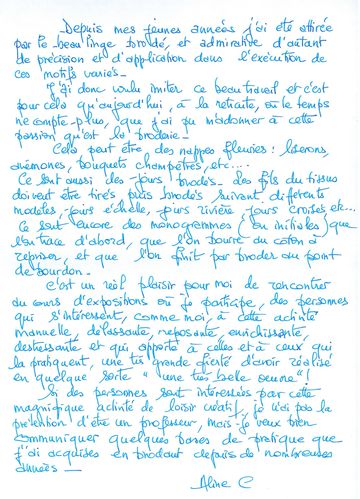 Depuis mes jeunes années j'ai été attirée
par le beau linge brodé, et admirative d'autant
de précision et d'application dans l'exécution de
ces motifs variés -
J'ai donc voulu imiter ce beau travail et c'est
pour cela qu'aujourd'hui, à la retraite, où le temps
ne compte plus, que j'ai pu m'adonner à cette
passion qu'est la broderie -
Cela peut être, des nappes fleuries : liserons,
anémones, bouquets champêtres, etc...
Ce sont aussi des "jours" brodés - des fils du tissus
doivent être tirés puis brodés suivant différents
modèles, jours échelle, jours rivière, jours croisés etc...
Ce sont encore des monogrammes (ou initiales) que
l'on trace d'abord, que l'on bourre au coton à
repriser, et que l'on finit par broder au point
de bourdon -
C'est un réel plaisir pour moi de rencontrer
au cours d'expositions où je participe, des personnes
qui s'intéressent, comme moi, à cette activité
manuelle, délassante, reposante, enrichissante,
déstressante et qui apporte à celles et à ceux qui
la pratiquent, une très grande fierté d'avoir réalisé
en quelque sorte "une très belle oeuvre" !
Si des personnes sont intéressées par cette
magnifique activité de loisir créatif, je n'ai pas la
prétention d'être un professeur, mais je veux bien
communiquer quelques bases de pratique que
j'ai acquises en brodant depuis de nombreuses
années -
Aline C